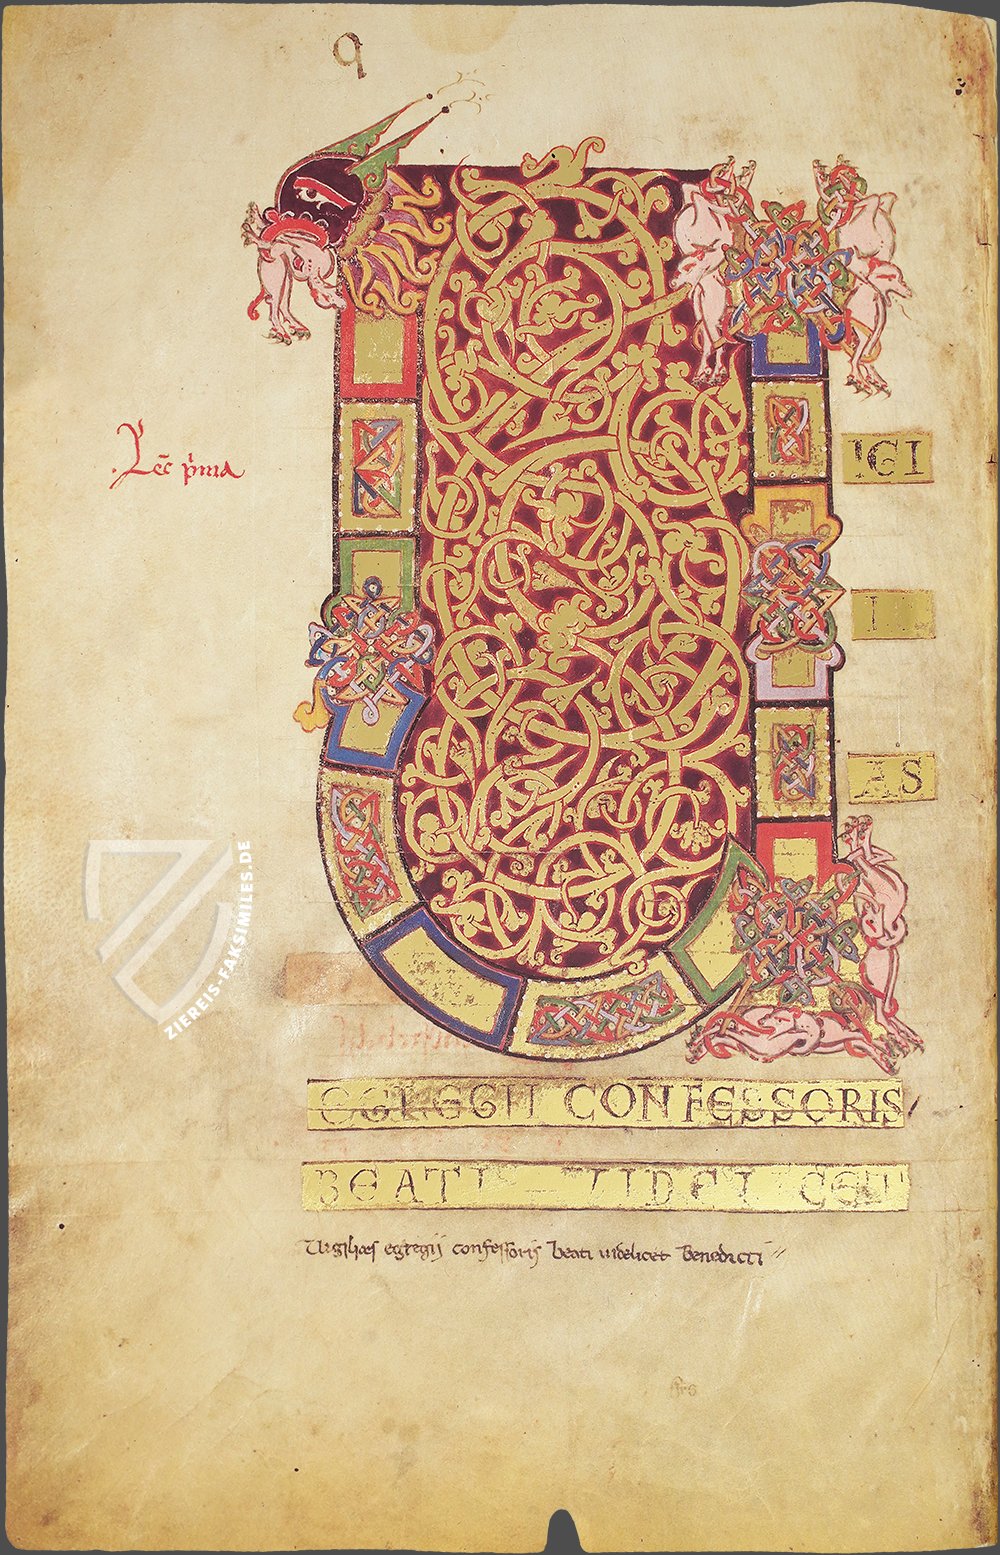 q
Lec̄ p̄ma
U
IGI
LI
AS
EGREGII CONFESSORIS
BEATI VIDELICET
Uigilias egregii confessoris beati uidelicet benedicti
ZIEREIS-FAKSIMILES.DE